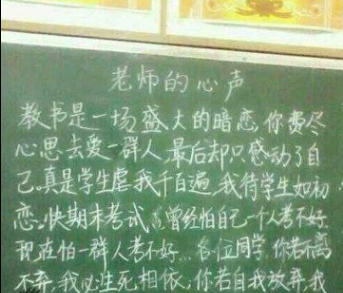 老师的心声
教书是一场盛大的暗恋,你费尽
心思去爱一群人,最后却只感动了自
己。真是学生虐我千百遍,我待学生如初
恋。快期末考试,曾经怕自己一个人考不好
现在怕一群人考不好...各位同学,你若不离
不弃,我必生死相依,你若自我放弃,我